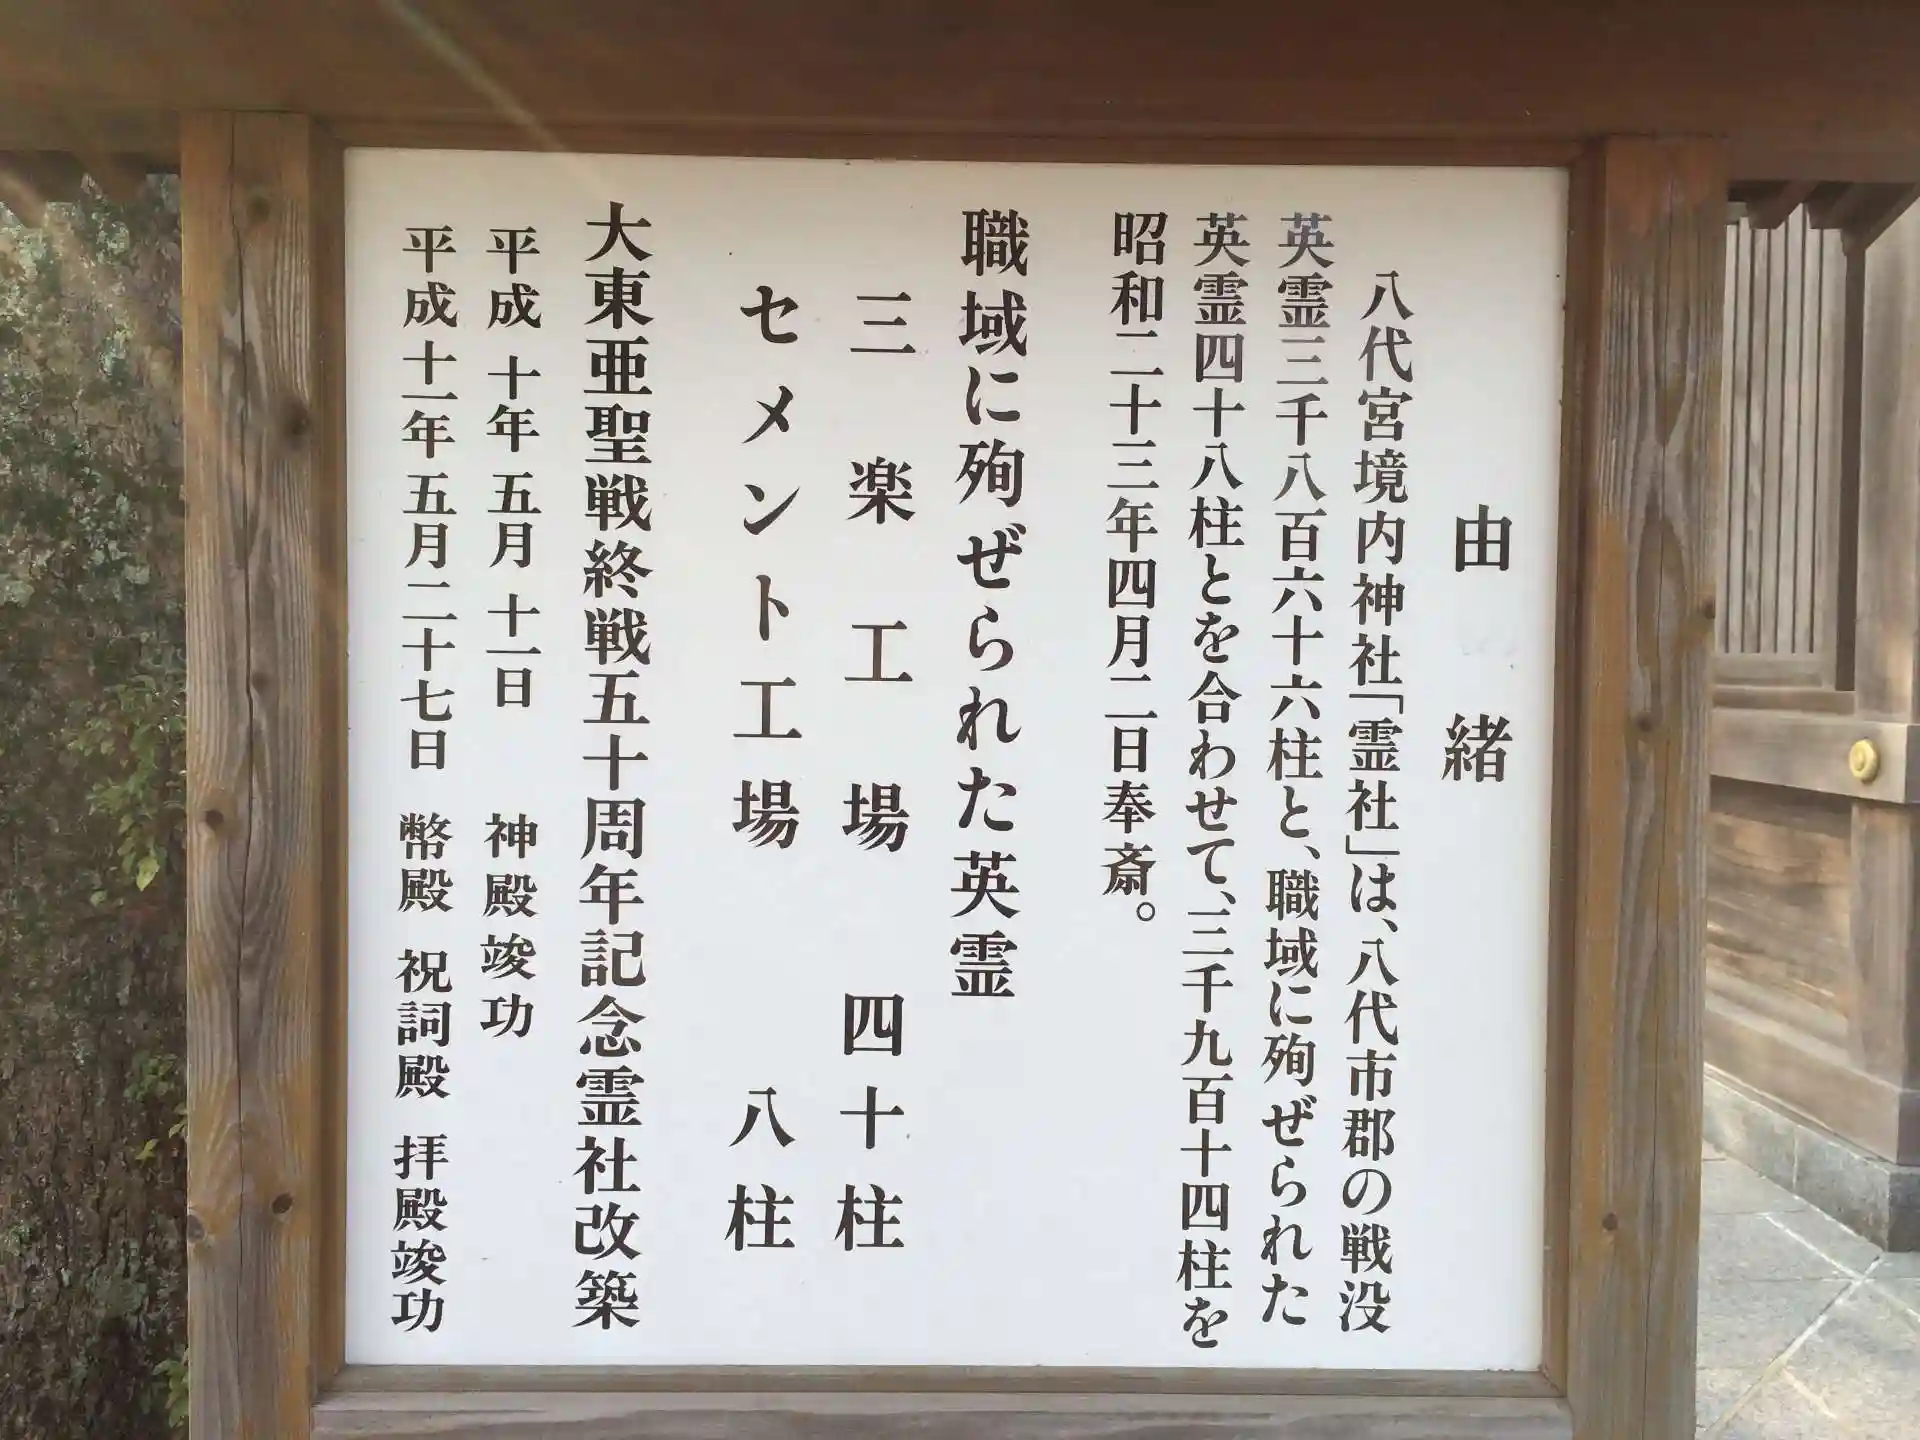 由緒
八代宮境内神社「霊社」は、八代市郡の戦没
英霊三千八百六十六柱と、職域に殉ぜられた
英霊四十八柱とを合わせて、三千九百十四柱を
昭和二十三年四月二日奉斎。
職域に殉ぜられた英霊
三楽工場 四十柱
セメント工場 八柱
大東亜聖戦終戦五十周年記念霊社改築
平成 十年 五月 十一日 神殿竣功
平成十一年 五月二十七日 幣殿 祝詞殿 拝殿竣功